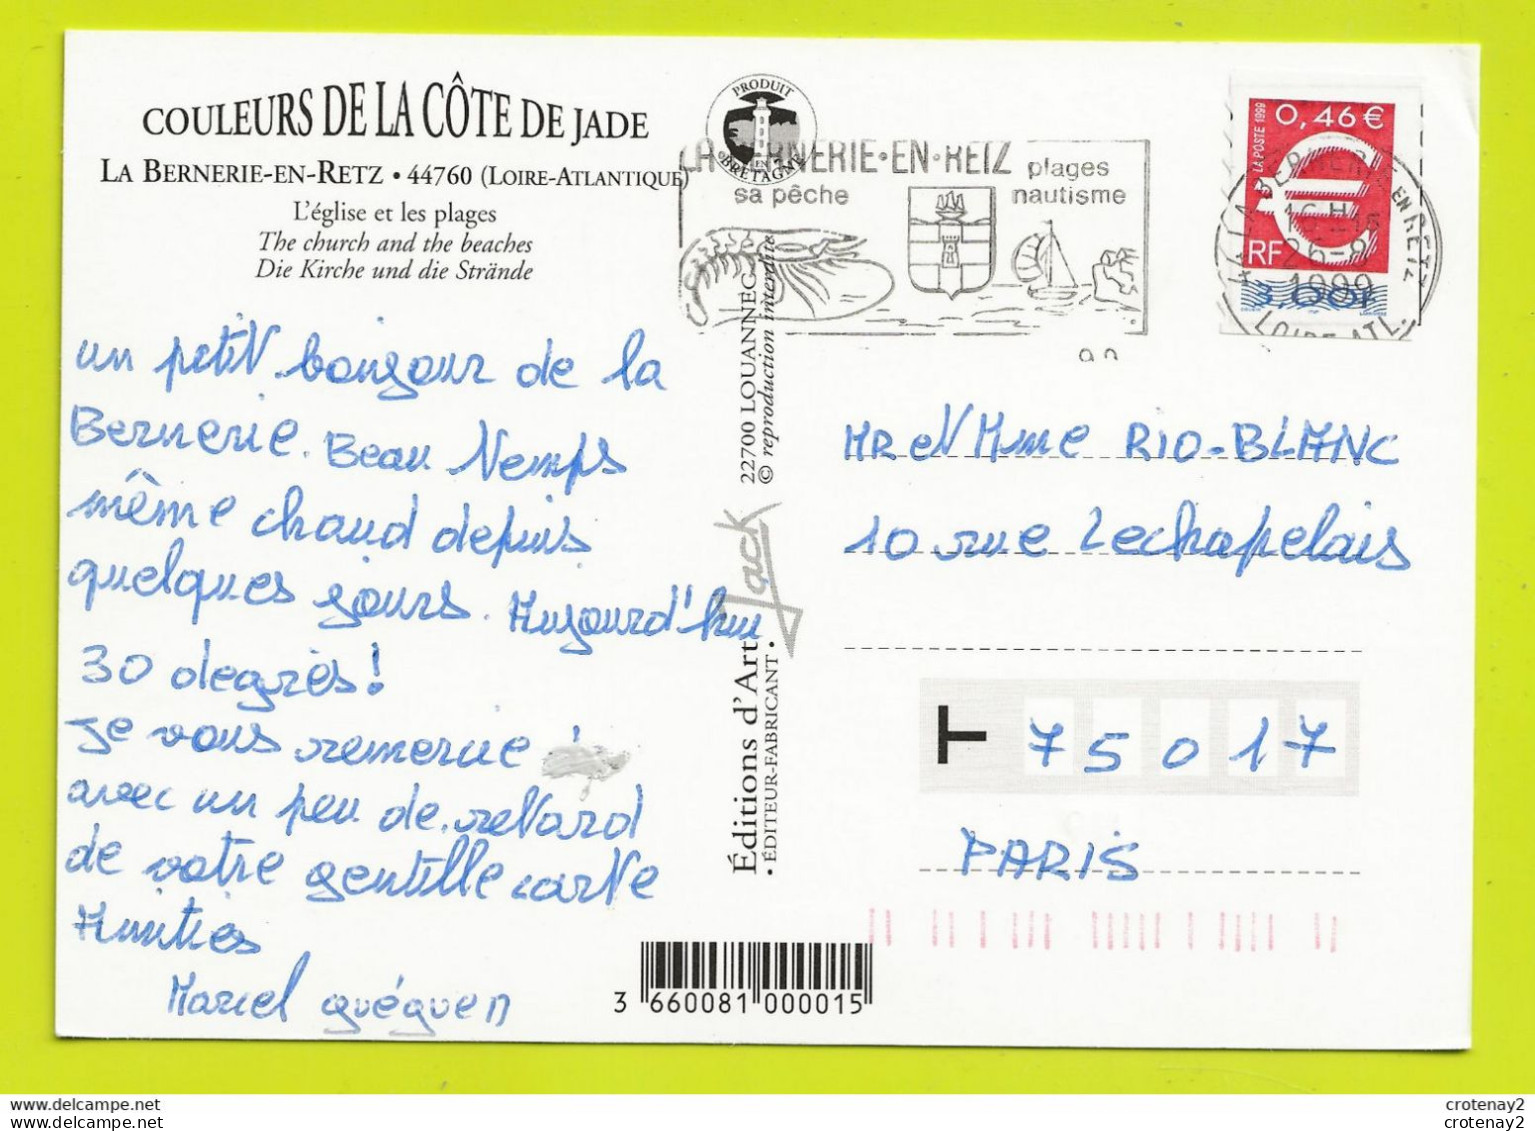 COULEURS DE LA CÔTE DE JADE
LA BERNERIE-EN-RETZ • 44760 (LOIRE-ATLANTIQUE)
L'église et les plages
The church and the beaches
Die Kirche und die Strände
un petit bonjour de la
Bernerie. Beau temps
même chaud depuis
quelques jours. Aujourd'hui
30 degrès!
Je vous remercie
avec un peu de retard
de votre gentille carte
Amitiés
Marcel Guéguen
PRODUIT
EN
BRETAGNE
LA BERNERIE•EN•RETZ
sa pêche
plages
nautisme
22700 LOUANNEC
© reproduction interdite
Jack
Éditions d'Art
• ÉDITEUR-FABRICANT •
3 660081 000015
LA POSTE 1999
0,46 €
RF
3,00F
LA BERNERIE EN RETZ
16H15
26-8
1999
LOIRE-ATL.
MR et Mme RIO-BLANC
10 rue Lechapelais
T 75017
PARIS
delcampe.net
crotenay2
delcampe.net
crotenay2